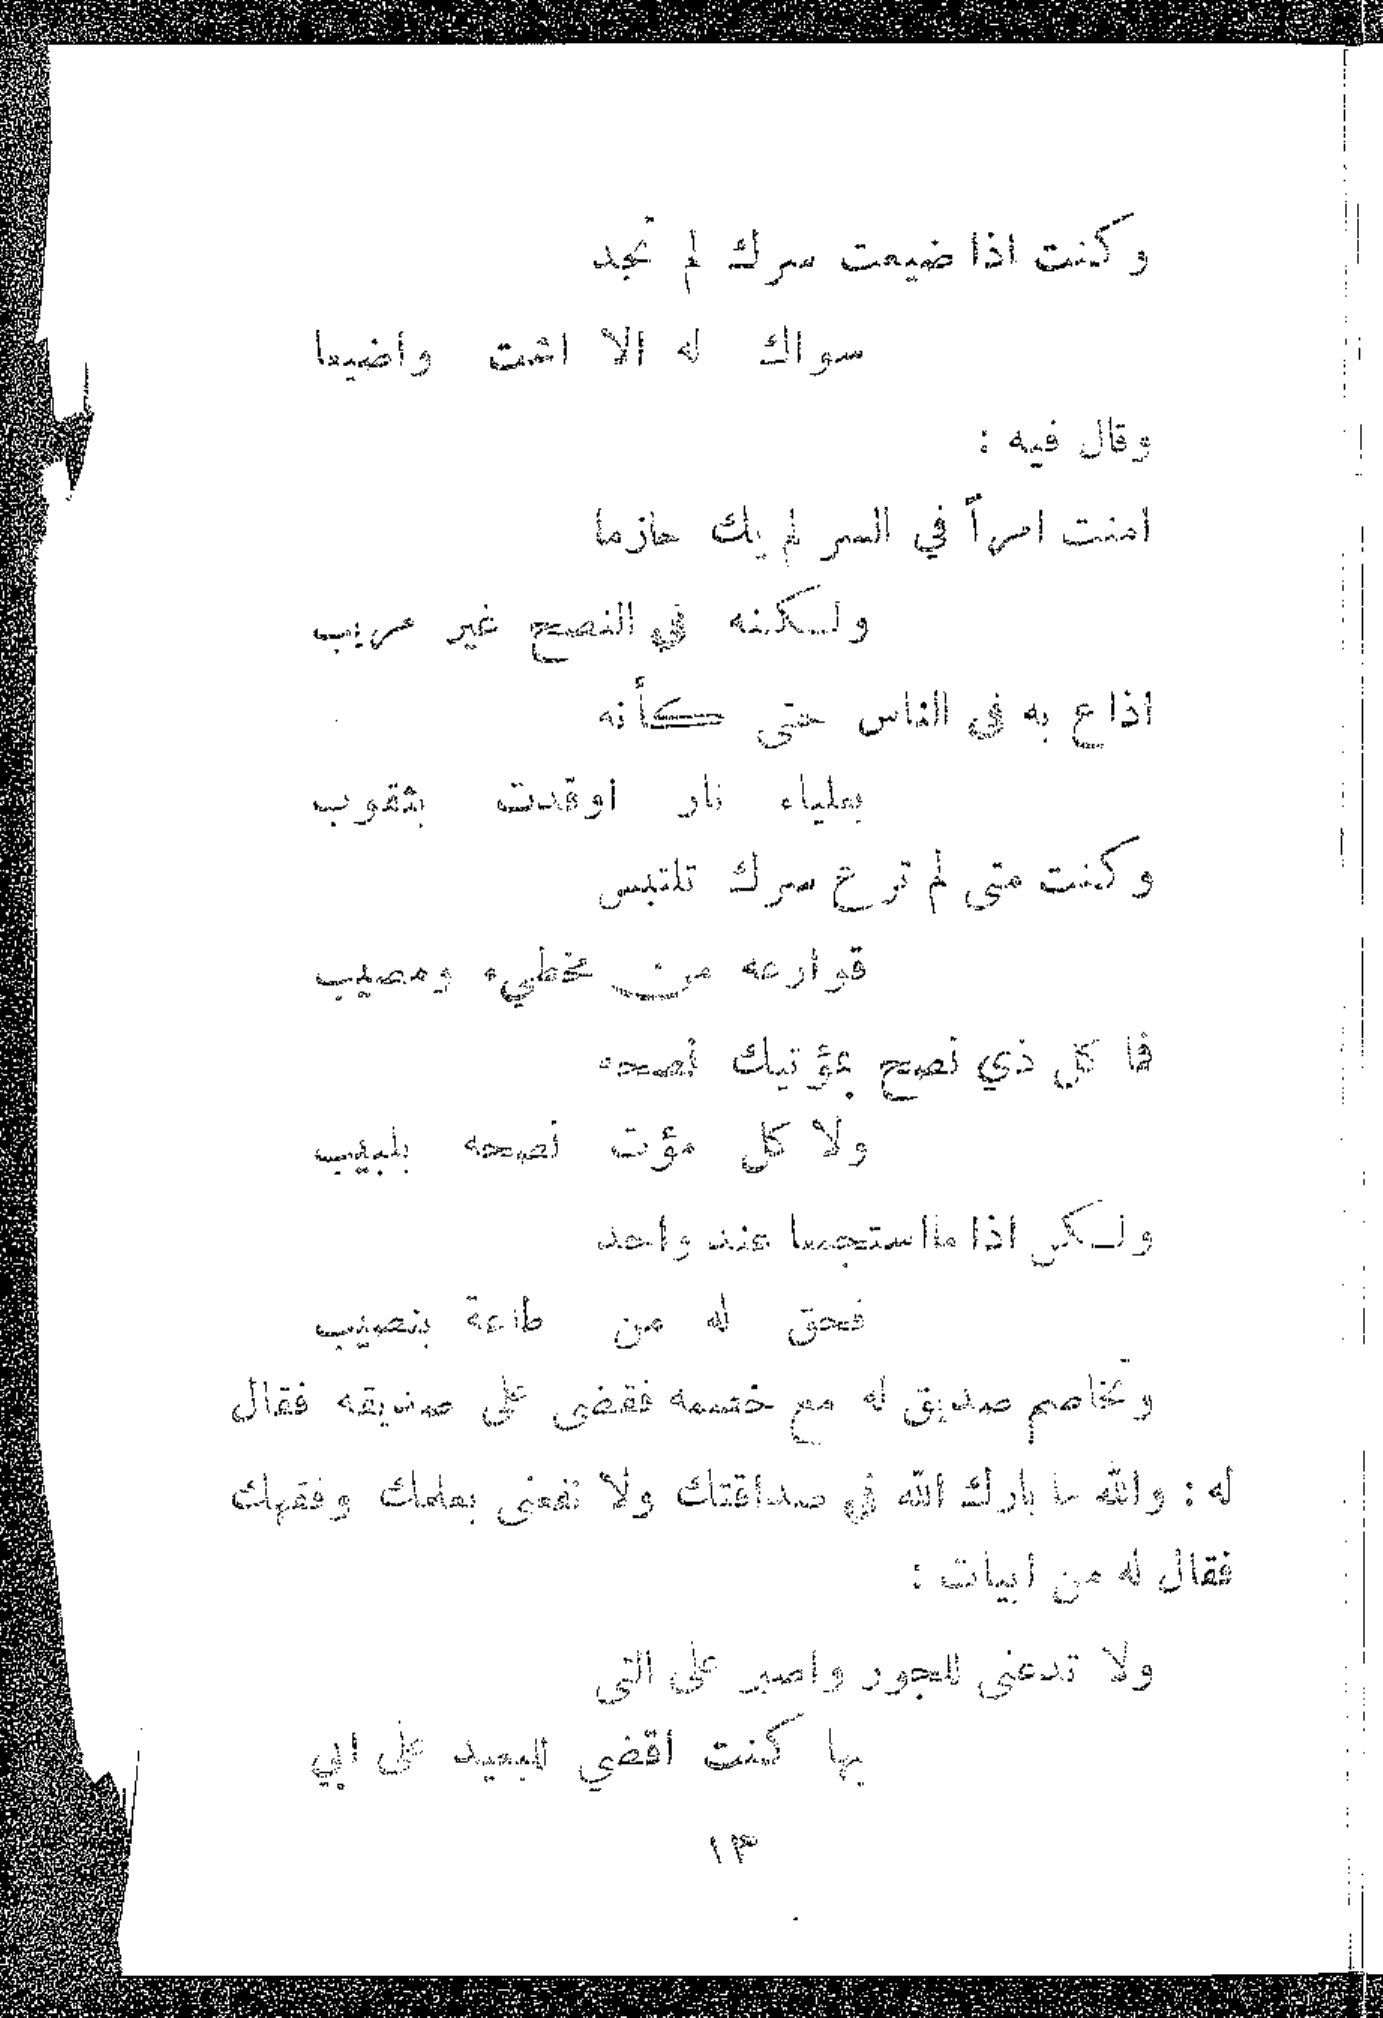 وكنت اذا ضيعت سرك لم تجد
سواك له الا اشت واضيعا
وقال فيه :
امنت امرأً في السر لم يك حازما
ولكنه في النصح غير مريب
اذاع به في الناس حتى كأنه
بعلياء نار اوقدت بثقوب
وكنت متى لم ترع سرك تلتبس
قوارعه من مخطيء ومصيب
فما كل ذي نصح بمؤتيك نصحه
ولا كل مؤت نصحه بلبيب
ولكن اذا ما استجمعا عند واحد
فحق له من طاعة بنصيب
وتخاصم صديق له مع خصمه فقضى على صديقه فقال
له : والله ما بارك الله في صداقتك ولا نفعنى بعلمك وفقهك
فقال له من ابيات :
ولا تدعنى للجور واصبر على التى
بها كنت اقضي للبعيد على ابي
١٣